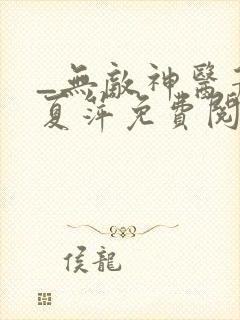 _無敵神醫
夏萍免費閱
侯龍